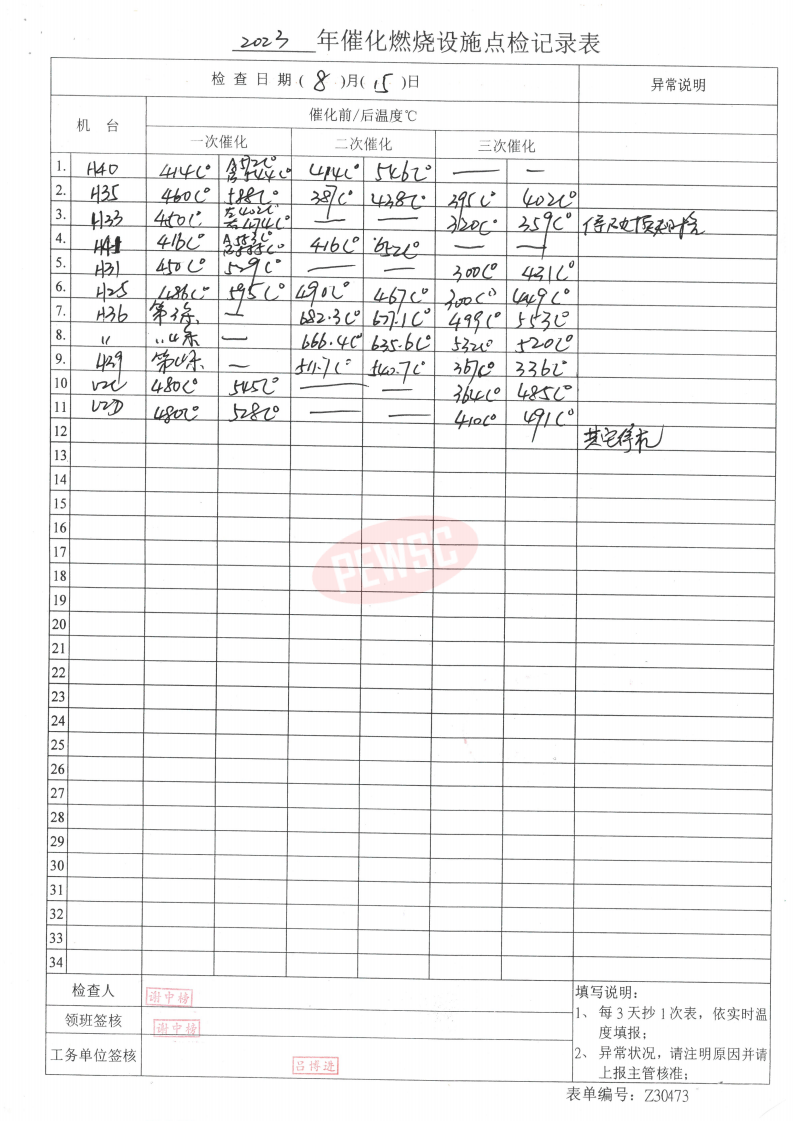 2023 年催化燃烧设施点检记录表
检查日期(8)月(15)日 异常说明
机 台 催化前/后温度℃
一次催化 二次催化 三次催化
1. H40 414C° 414C° 546C° — —
2. H35 460C° 588C° 387C° 438C° 395C° 402C°
3. H33 450C° 左402C° 右474C° — — 320C° 359C°
4. 416C° 416C° 652C° — —
5. H31 450C° 529C° — — 300C° 431C°
6. H25 486C° 595C° 490C° 467C° 300C° 449C°
7. H36 第3条 — 682.3C° 677.1C° 499C° 553C°
8. 〃 〃4条 — 666.4C° 635.6C° 532C° 520C°
9. H29 — 511.7C° 540.7C° 367C° 336C°
10 V2C 480C° 545C° — — 364C° 485C°
11 V2D 480C° 528C° — — 410C° 491C°
12 其它停机
13
14
15
16
17
18
19
20
21
22
23
24
25
26
27
28
29
30
31
32
33
34
PEWSC
检查人 谢中榜
领班签核 谢中榜
工务单位签核 吕博进
填写说明：
1、每3天抄1次表，依实时温
度填报；
2、异常状况，请注明原因并请
上报主管核准；
表单编号：Z30473